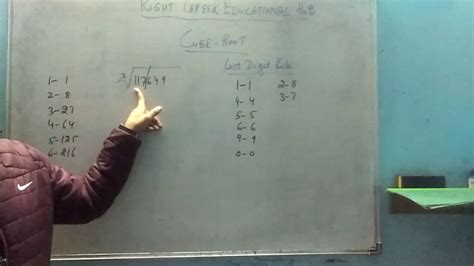 RIGHT CAREER EDUCATIONAL HUB
CUBE-ROOT
1-1
2-8
3-27
4-64
5-125
6-216
3√117/649
Last Digit Rule
1-1 2-8
4-4 3-7
5-5
6-6
9-9
0-0